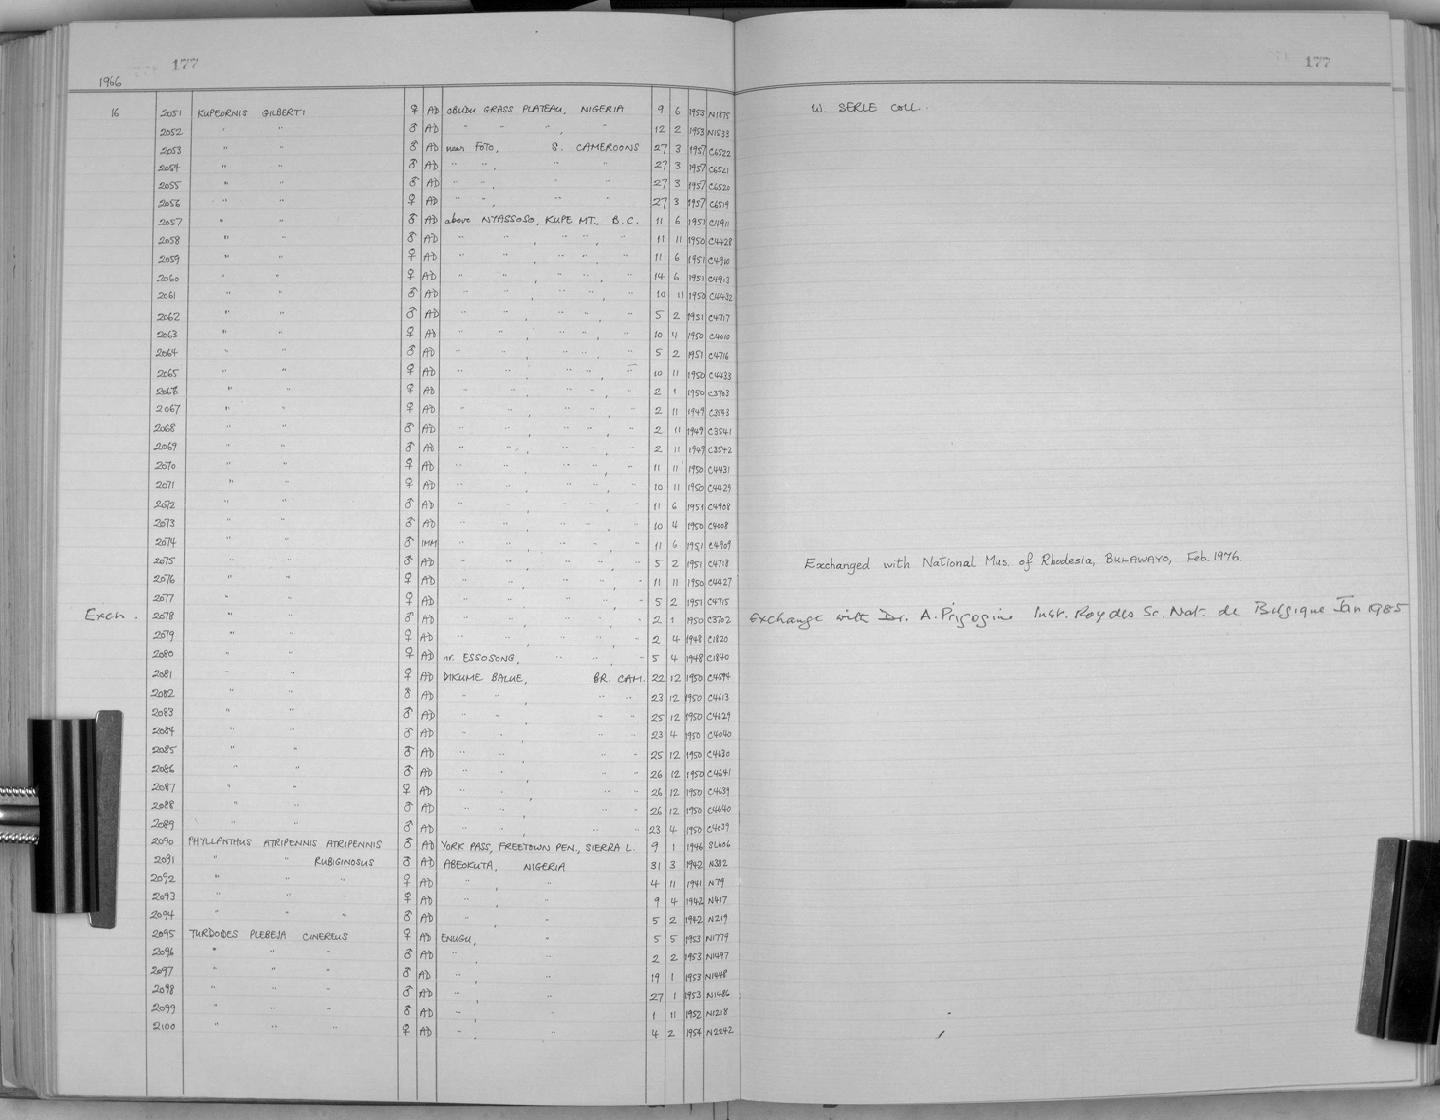 177
177
1966
16 2051 KUPEORNIS GILBERTI ♀ AD OBUDU GRASS PLATEAU, NIGERIA 9 6 1953 N1875 W. SERLE COLL.
2052 " " ♂ AD " " " , " 12 2 1953 N1533
2053 " " ♂ AD near FOTO, S. CAMEROONS 27 3 1957 C6522
2054 " " ♂ AD " " , " " 27 3 1957 C6521
2055 " " ♂ AD " " , " " 27 3 1957 C6520
2056 " " ♀ AD " " , " " 27 3 1957 C6519
2057 " " ♂ AD above NYASSOSO, KUPE MT. B.C. 11 6 1951 C4911
2058 " " ♂ AD " " , " " , " 11 11 1950 C4428
2059 " " ♀ AD " " , " " , " 11 6 1951 C4910
2060 " " ♀ AD " " , " " , " 14 6 1951 C4913
2061 " " ♂ AD " " , " " , " 10 11 1950 C4432
2062 " " ♂ AD " " , " " , " 5 2 1951 C4717
2063 " " ♀ AD " " , " " , " 10 4 1950 C4010
2064 " " ♂ AD " " , " " , " 5 2 1951 C4716
2065 " " ♀ AD " " , " " , " 10 11 1950 C4433
2066 " " ♀ AD " " , " " , " 2 1 1950 C3703
2067 " " ♀ AD " " , " " , " 2 11 1949 C3543
2068 " " ♂ AD " " , " " , " 2 11 1949 C3541
2069 " " ♂ AD " " , " " , " 2 11 1949 C3542
2070 " " ♀ AD " " , " " , " 11 11 1950 C4431
2071 " " ♀ AD " " , " " , " 10 11 1950 C4429
2072 " " ♂ AD " " , " " , " 11 6 1951 C4908
2073 " " ♂ AD " " , " " , " 10 4 1950 C4008
2074 " " ♂ IMM " " , " " , " 11 6 1951 C4909
2075 " " ♂ AD " " , " " , " 5 2 1951 C4718 Exchanged with National Mus. of Rhodesia, BULAWAYO, Feb. 1976.
2076 " " ♀ AD " " , " " , " 11 11 1950 C4427
2077 " " ♀ AD " " , " " , " 5 2 1951 C4715
Exch. 2078 " " ♂ AD " " , " " , " 2 1 1950 C3702 Exchange with Dr. A. Prigogine Inst. Roy des Sc. Nat. de Belgique Jan 1985
2079 " " ♀ AD " " , " " , " 2 4 1948 C1820
2080 " " ♀ AD nr. ESSOSONG, " " , " 5 4 1948 C1840
2081 " " ♀ AD DIKUME BALUE, BR. CAM. 22 12 1950 C4594
2082 " " ♂ AD " " , " " 23 12 1950 C4613
2083 " " ♂ AD " " , " " 25 12 1950 C4629
2084 " " ♂ AD " " , " " 23 4 1950 C4040
2085 " " ♂ AD " " , " " 25 12 1950 C4630
2086 " " ♂ AD " " , " " 26 12 1950 C4641
2087 " " ♀ AD " " , " " 26 12 1950 C4639
2088 " " ♂ AD " " , " " 26 12 1950 C4640
2089 " " ♂ AD " " , " " 23 4 1950 C4039
2090 PHYLLANTHUS ATRIPENNIS ATRIPENNIS ♂ AD YORK PASS, FREETOWN PEN., SIERRA L. 9 1 1946 SL606
2091 " " RUBIGINOSUS ♂ AD ABEOKUTA, NIGERIA 31 3 1942 N382
2092 " " " ♀ AD " , " 4 11 1941 N79
2093 " " " ♀ AD " , " 9 4 1942 N417
2094 " " " ♂ AD " , " 5 2 1942 N219
2095 TURDODES PLEBEJA CINEREUS ♀ AD ENUGU, " 5 5 1953 N1779
2096 " " " ♂ AD " , " 2 2 1953 N1497
2097 " " " ♂ AD " , " 19 1 1953 N1448
2098 " " " ♂ AD " , " 27 1 1953 N1486
2099 " " " ♂ AD " , " 1 11 1952 N1218
2100 " " " ♀ AD " , " 4 2 1954 N2242